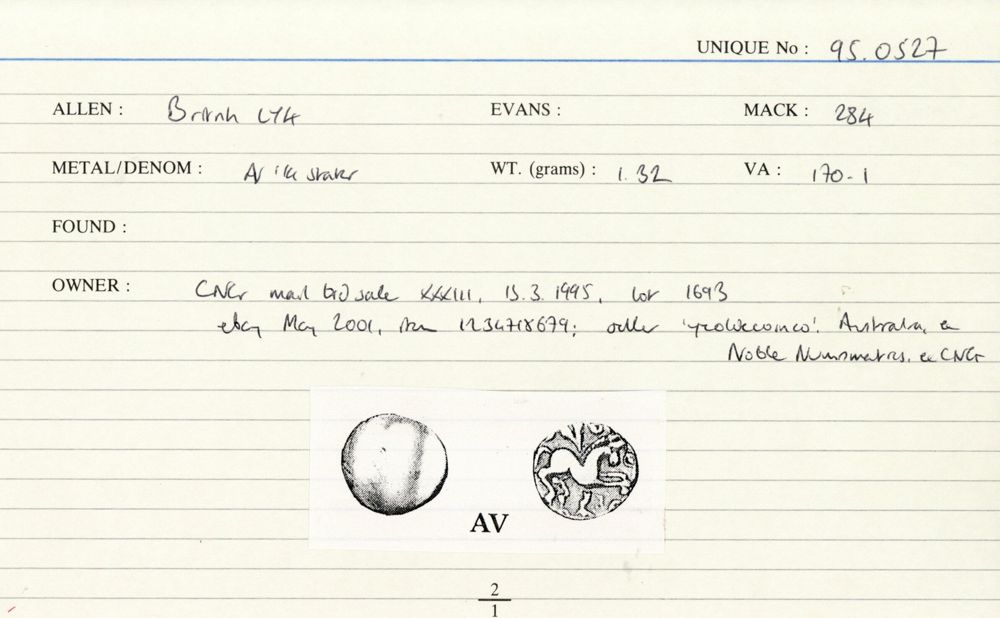 UNIQUE No : 95.0527
ALLEN : British LY4 EVANS : MACK : 284
METAL/DENOM : AV 1/4 stater WT. (grams) : 1.32 VA : 170-1
FOUND :
OWNER : CNG mail bid sale XXXIII, 15.3.1995, lot 1693
ebay May 2001, item 1134718679; seller Australia, ex
Noble Numismatics, ex CNG
AV
2
1